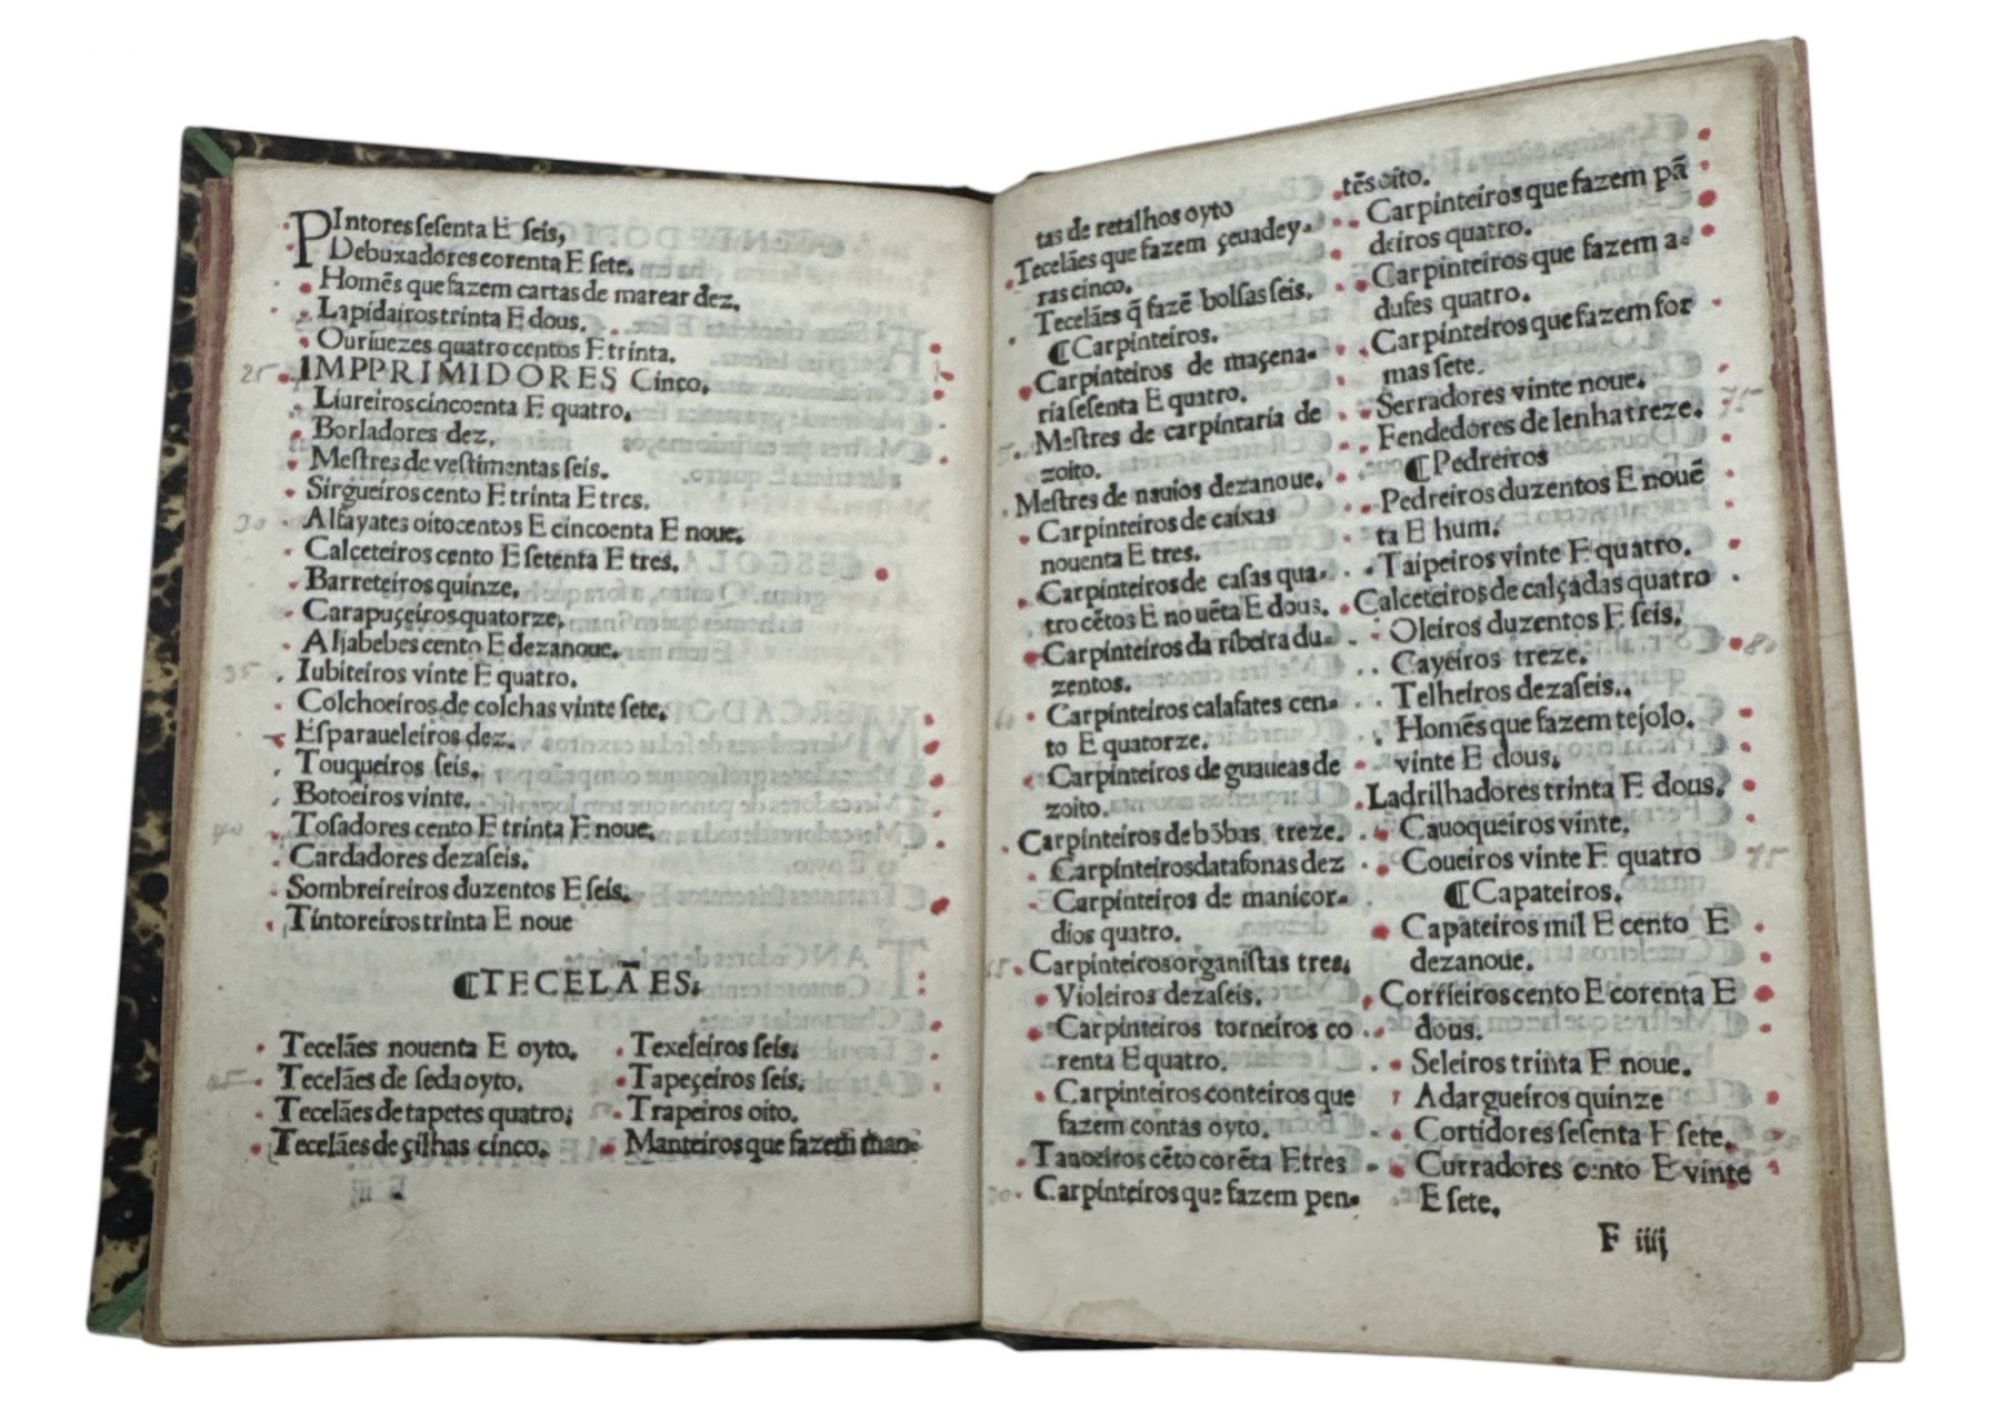 PIntores sesenta E seis,
Debuxadores corenta E sete.
Homẽs que fazem cartas de marear dez.
Lapidairos trinta E dous.
Ouriuezes quatro centos E trinta.
IMPPRIMIDORES Cinco.
Liureiros cincoenta E quatro.
Borladores dez.
Meſtres de veſtimentas ſeis.
Sirgueiros cento E trinta E tres.
Alfayates oitocentos E cincoenta E noue.
Calceteiros cento E ſetenta E tres.
Barreteiros quinze.
Carapuçeiros quatorze.
Aljabebes cento E dezanoue.
Iubiteiros vinte E quatro.
Colchoeiros de colchas vinte ſete.
Eſparaueleiros dez.
Touqueiros ſeis.
Botoeiros vinte.
Toſadores cento E trinta E noue.
Cardadores dezaſeis.
Sombreireiros duzentos E ſeis.
Tintoreiros trinta E noue
¶TECELÃES.
Tecelães nouenta E oyto.
Tecelães de ſeda oyto.
Tecelães de tapetes quatro.
Tecelães de çilhas cinco.
Texeleiros ſeis.
Tapeçeiros ſeis.
Trapeiros oito.
Manteiros que fazem man-
tas de retalhos oyto
Tecelães que fazem çeuadey-
ras cinco.
Tecelães q̃ fazẽ bolſas ſeis.
¶Carpinteiros.
Carpinteiros de maçena-
ria ſeſenta E quatro.
Meſtres de carpintaria de
zoito.
Meſtres de nauios dezanoue.
Carpinteiros de caixas
nouenta E tres.
Carpinteiros de caſas qua-
tro cẽtos E nouẽta E dous.
Carpinteiros da ribeira du-
zentos.
Carpinteiros calafates cen-
to E quatorze.
Carpinteiros de guaueas de
zoito.
Carpinteiros de bõbas treze.
Carpinteiros datafonas dez
Carpinteiros de manicor-
dios quatro.
Carpinteiros organiſtas tres.
Violeiros dezaſeis.
Carpinteiros torneiros co
renta E quatro.
Carpinteiros conteiros que
fazem contas oyto.
Tanoeiros cẽto corẽta E tres
Carpinteiros que fazem pen-
tẽs oito.
Carpinteiros que fazem pã
deiros quatro.
Carpinteiros que fazem a-
dufes quatro.
Carpinteiros que fazem for
mas ſete.
Serradores vinte noue.
Fendedores de lenha treze.
¶Pedreiros
Pedreiros duzentos E nouẽ
ta E hum.
Taipeiros vinte E quatro.
Calceteiros de calçadas quatro
Oleiros duzentos E ſeis.
Cayeiros treze.
Telheiros dezaſeis..
Homẽs que fazem tejolo.
vinte E dous.
Ladrilhadores trinta E dous.
Cauoqueiros vinte.
Coueiros vinte E quatro
¶Capateiros.
Capateiros mil E cento E
dezanoue.
Corrieiros cento E corenta E
dous.
Seleiros trinta E noue.
Adargueiros quinze
Cortidores ſeſenta E ſete.
Curradores cento E vinte
E ſete.
F iiij